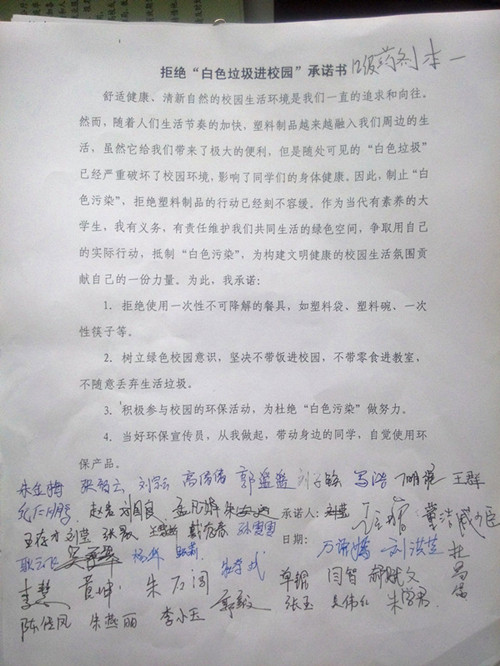 拒绝“白色垃圾进校园”承诺书 12级药剂本一
舒适健康、清新自然的校园生活环境是我们一直的追求和向往。
然而，随着人们生活节奏的加快，塑料制品越来越融入我们周边的生
活，虽然它给我们带来了极大的便利，但是随处可见的“白色垃圾”
已经严重破坏了校园环境，影响了同学们的身体健康。因此，制止“白
色污染”，拒绝塑料制品的行动已经刻不容缓。作为当代有素养的大
学生，我有义务，有责任维护我们共同生活的绿色空间，争取用自己
的实际行动，抵制“白色污染”，为构建文明健康的校园生活氛围贡
献自己的一份力量。为此，我承诺：
1、拒绝使用一次性不可降解的餐具，如塑料袋、塑料碗、一次
性筷子等。
2、树立绿色校园意识，坚决不带饭进校园，不带零食进教室，
不随意丢弃生活垃圾。
3、积极参与校园的环保活动，为杜绝“白色污染”做努力。
4、当好环保宣传员，从我做起，带动身边的同学，自觉使用环
保产品。
张智云 高倩倩 郭盖盖 马浩 王群
承诺人：刘莹
王存才 刘莹 张晨
日期：
李慧 黄坤 朱石阔 单锟 闫智 郝斌文
陈保凤 朱燕丽 李小玉 郭毅 张玉 吴伟红 朱学君